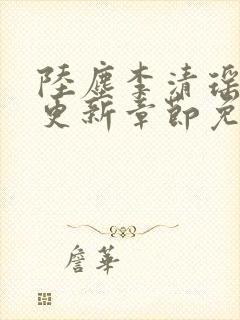 陸塵李清瑶
更新章節免
詹華